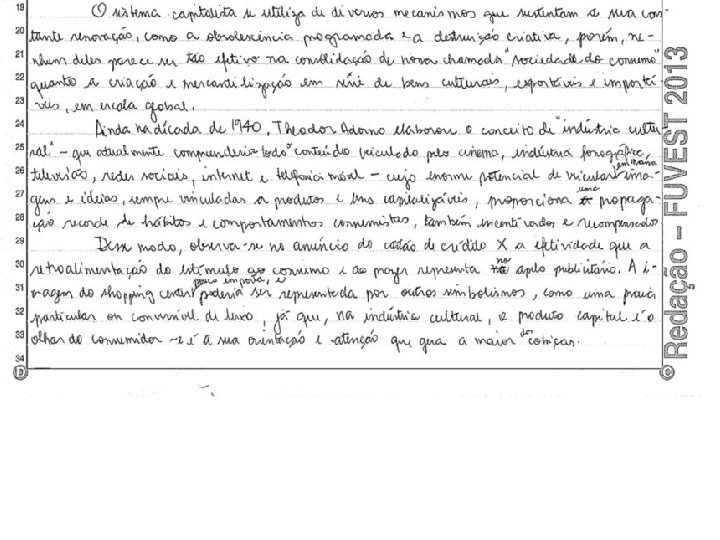 19 O sistema capitalista se utiliza de diversos mecanismos que sustentam a sua cons-
20 tante renovação, como a obsolescência programada e a destruição criativa, porém, ne-
21 nhum deles parece ser tão efetivo na consolidação da nossa chamada "sociedade do consumo"
22 quanto a criação e mercantilização em série de bens culturais, exportáveis e importá-
23 veis, em escala global.
24 Ainda na década de 1940, Theodor Adorno elaborou o conceito de "indústria cultu
25 ral" – que atualmente compreenderia todo conteúdo veiculado pelo cinema, indústria fonográfica,
26 televisão, redes sociais, internet e telefonia móvel – cujo enorme potencial de veicular em massa ima-
27 gens e ideias, sempre vinculadas a produtos e bens capitalizáveis, proporciona uma propaga-
28 ção recorde de hábitos e comportamentos consumistas, também incentivados e recompensados.
29 Desse modo, observa-se no anúncio do cartão de crédito X a efetividade que a
30 retroalimentação do estímulo ao consumo e do prazer representa no apelo publicitário. A i-
31 magem do shopping center pouco importa, e poderia ser representada por outros simbolismos, como uma praia
32 particular ou conversível de luxo, já que, na indústria cultural, o produto capital é o
33 olhar do consumidor – e é a sua orientação e atenção que gera a maior das cobiças.
34
D
C
Redação – FUVEST 2013